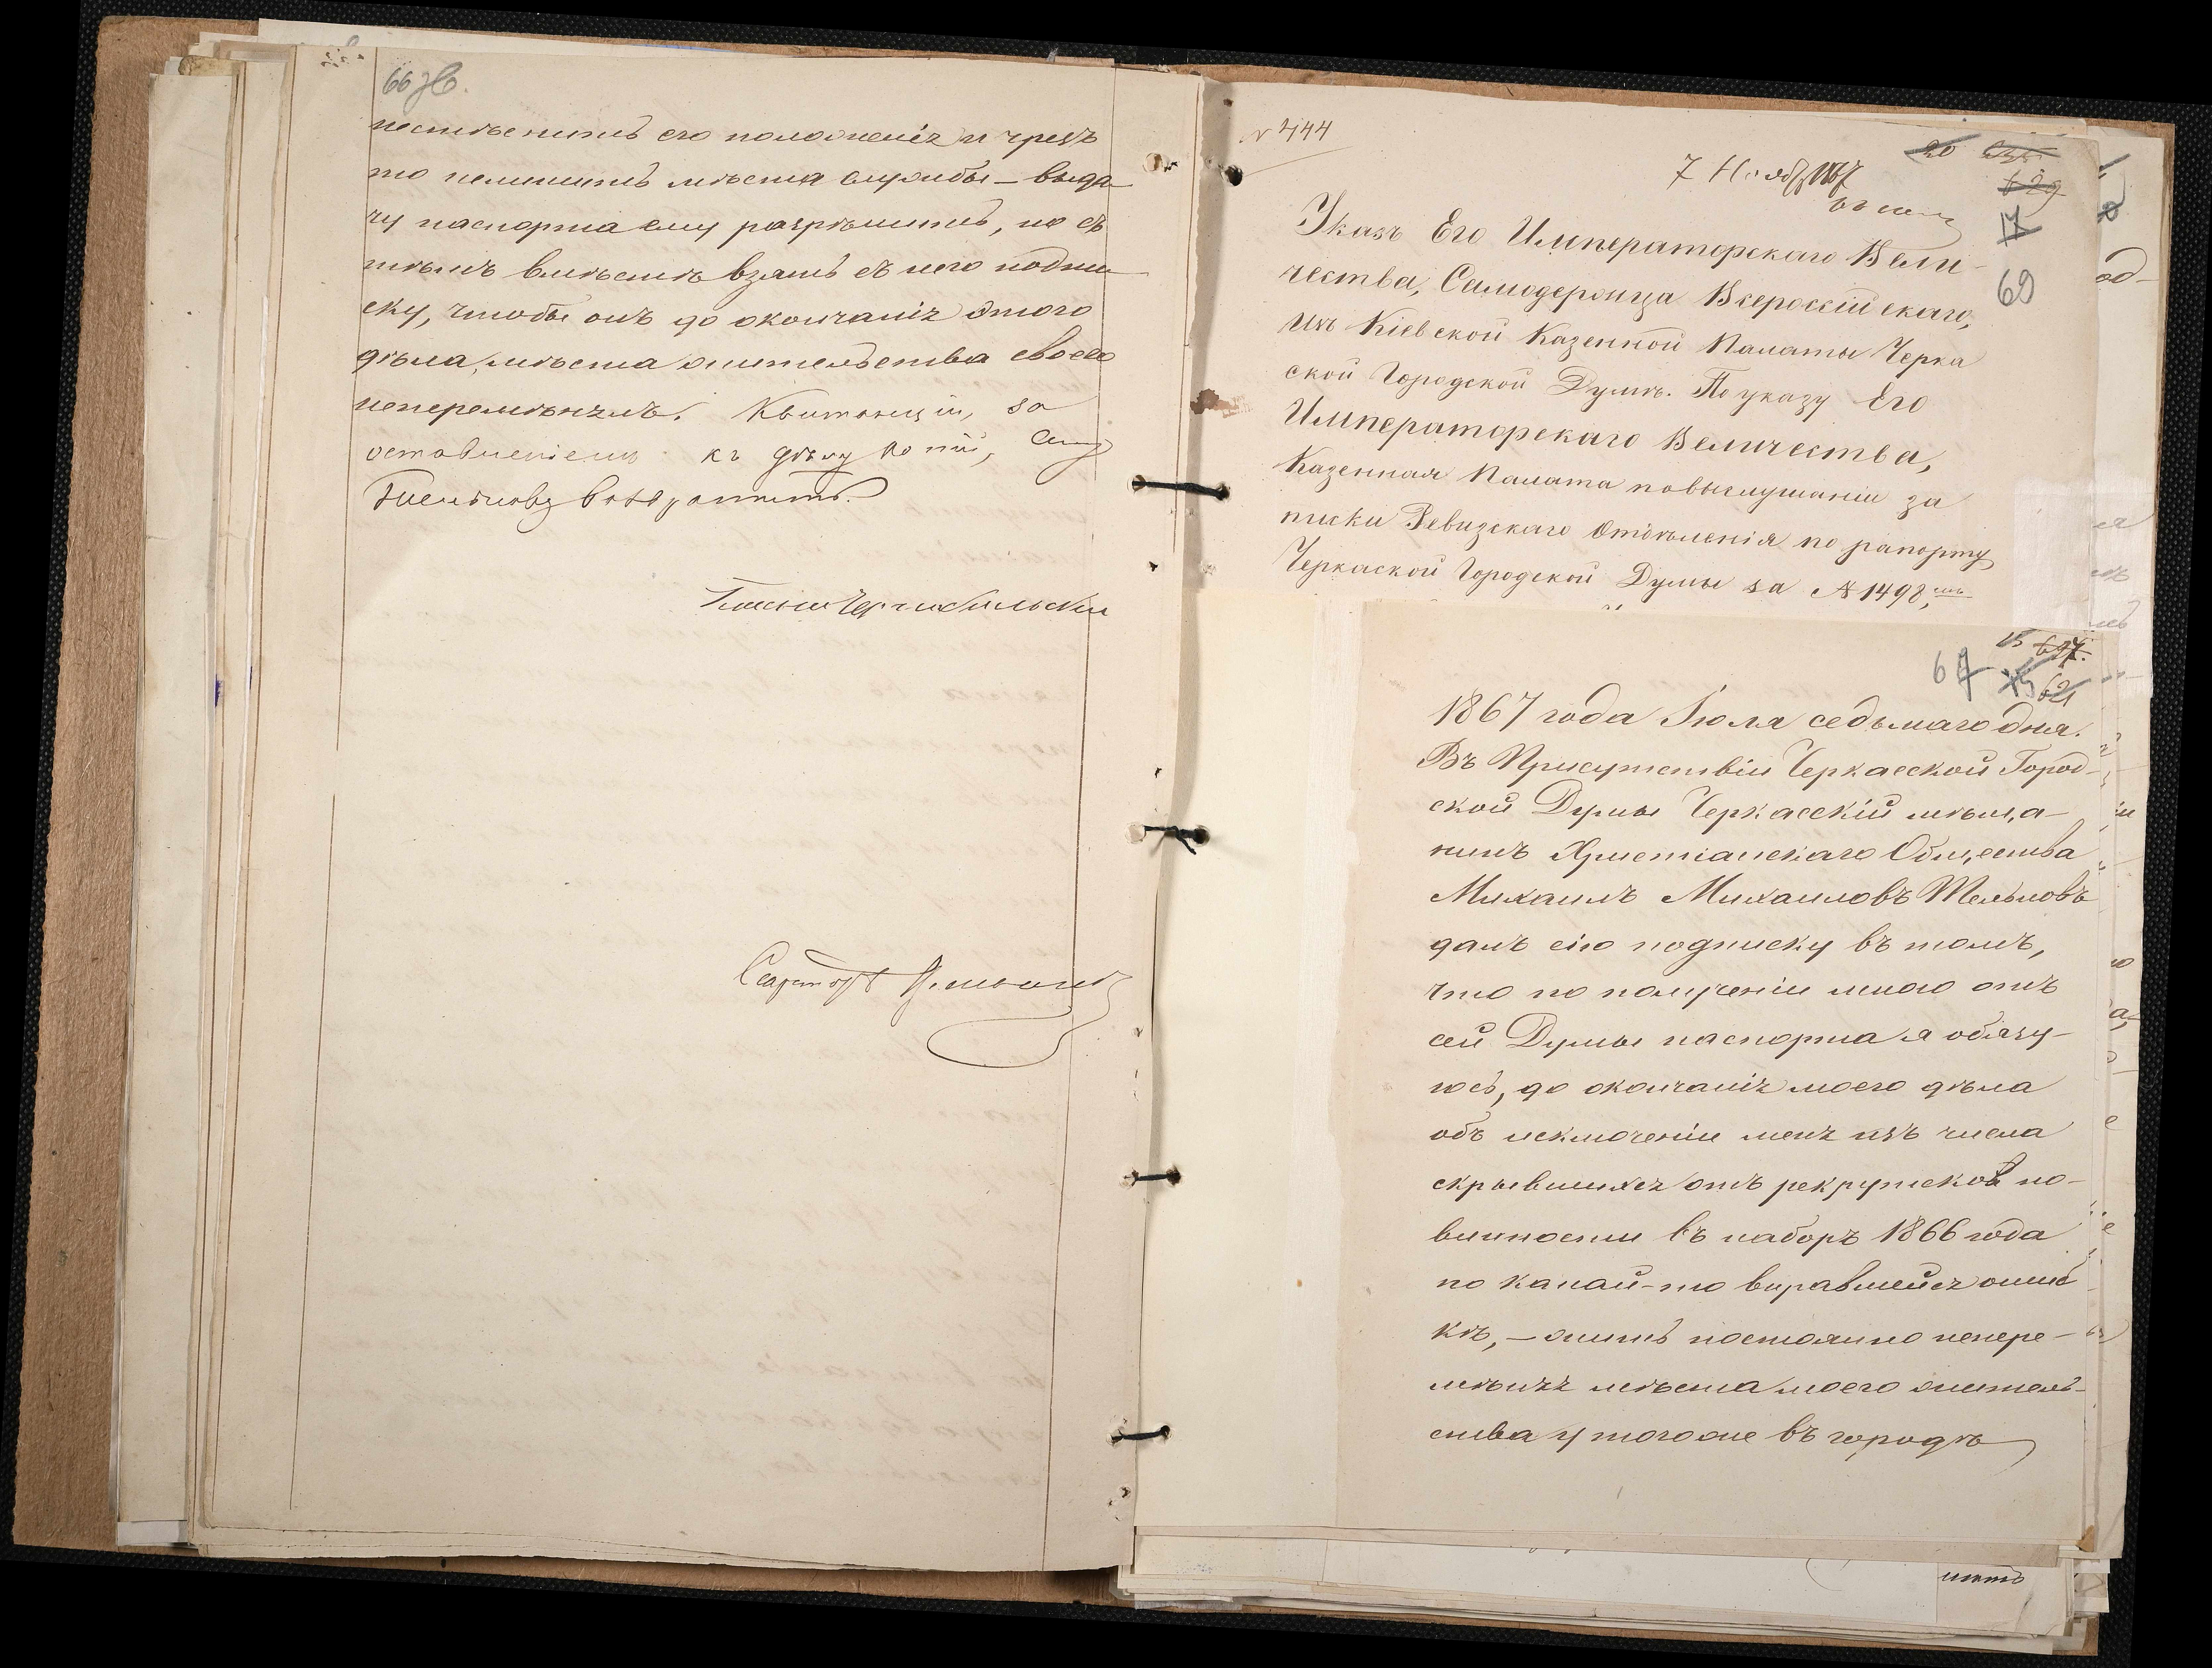 66 зв.
нестѣснить его положенія и чрезъ
то нелишить мѣста службы — выда-
чу паспорта ему разрѣшить, но съ
тѣмъ вмѣстѣ взять съ него подпи-
ску, чтобы онъ до окончанія этого
дѣла, мѣста жительства своего
неперемѣнялъ. Квитанціи, за
оставленіемъ къ дѣлу копій,
возвратить.
№ 444
7 Ноября 1867
20
629
17
69
Указъ Его Императорскаго Вели-
чества, Самодержца Всероссійскаго,
изъ Кіевской Казенной Палаты Черка
ской Городской Думѣ. По указу Его
Императорскаго Величества,
Казенная Палата повыслушаніи за
писки Ревизскаго Отдѣленія по рапорту
Черкаской Городской Думы за № 1498,
67
15
627.
621
1867 года Іюля седьмаго дня.
Въ Присутствіи Черкасской Город-
ской Думы Черкасскій мѣща-
нинъ Христіанскаго Общества
Михаилъ Михаиловъ Тельновъ
далъ сію подписку въ томъ,
что по полученіи мною отъ
сей Думы паспорта я обязу-
юсь, до окончанія моего дѣла
объ исключеніи меня изъ числа
скрывшихся отъ рекрутской по-
винности въ наборъ 1866 года
по какай-то виравшейся ошиб
кѣ, — жить постоянно непере-
мѣняя мѣста моего житель-
ства у тогоже въ городѣ